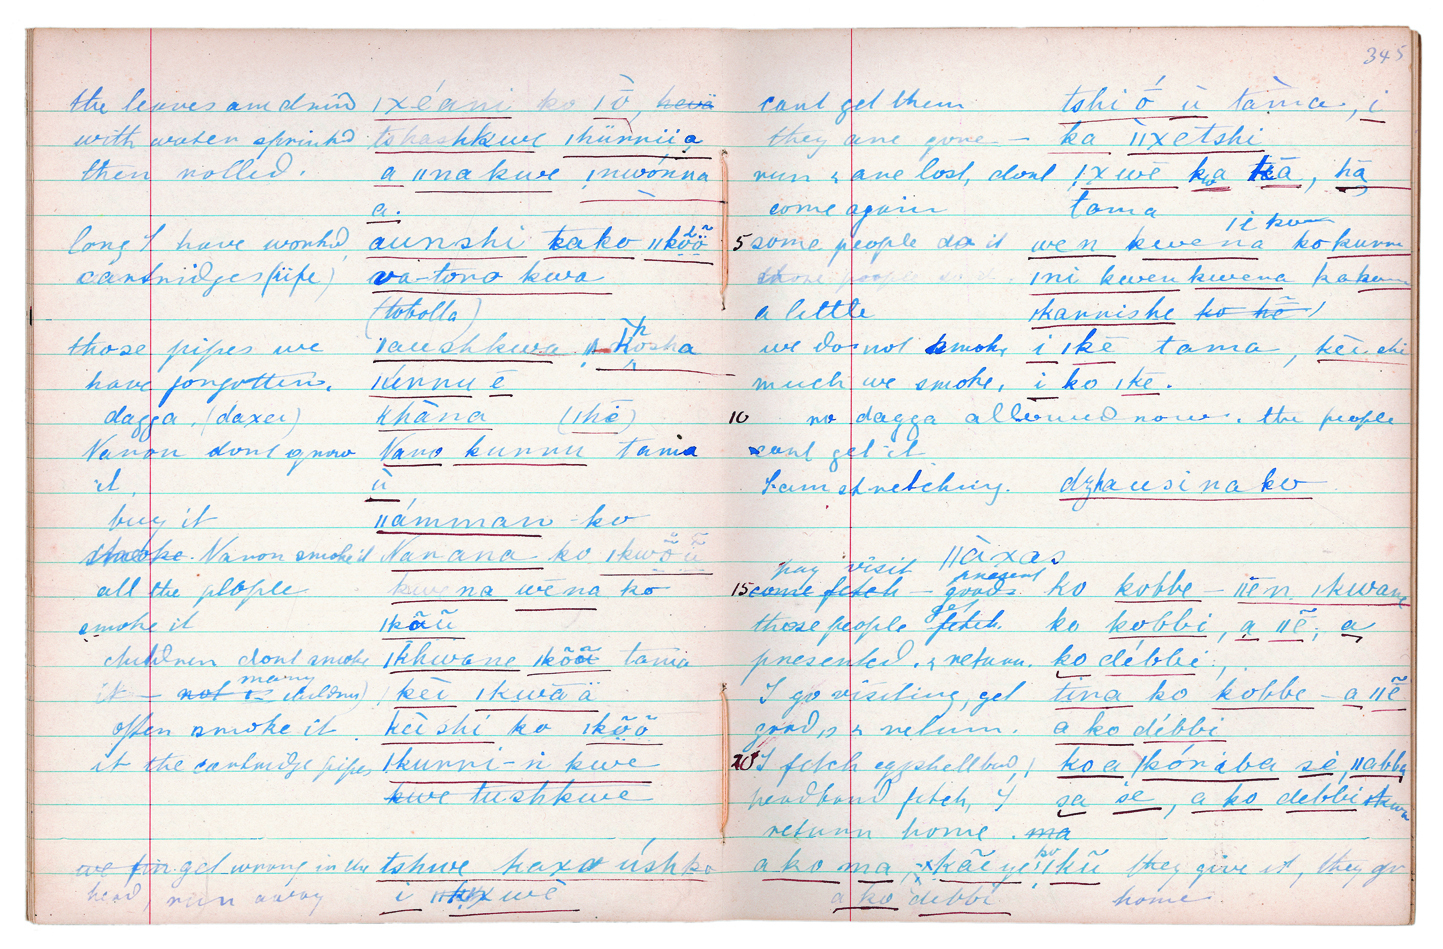 the leaves are dried ǀxéani ko ǀō, hevä
with water sprinkd tshashkwe ǀhürriïa
then rolled. a ǁnakwe ǀnwónna
a.
long I have workd, aunshi kako ǁkȫȫ
cartridges (pipe) va-toro kwa
(tobolla)
those pipes we ǀaushkwa
have forgotten. ǀkennu ē
dagga. (daxer) khāna (ǀhē)
Naron dont grow Naro kunnu tama
it. ù
buy it ǁámman-ko
smoke. Naron smoke it Narana ko
all the people kwena wēna ko
smoke it ǀkãũ
children dont smoke ǀkhwane ǀkõã tama
it – not is many children) kēi ǀkwāä
often smoke it keishi ko ǀkõõ
it the cartridge pipes ǀkurri-n kwe
kwe tushkwe
we fin get wrong in the tshwe haxa úshko
head, run away i xwē
345
cant get them tshi ó ù tàma, i
they are gone – ka ǁxetshi
run & are lost, dont ǃxwē ka kā, hā
come again tama
ǀi ko
5 some people do it wen kwena ko kurru
ǀni kwen kwena
a little ǀkannishe ko hē
we do not smoke i ǀkē tama, kēishi
much we smoke, i ko ǀkē.
10 no dagga allowed now. the people
cant get it
I am stretching. dzhausinako
pay visit ǁàxas
present
15 come fetch – goods ko kobbe – ǁēn ǀkwane
get
those people fetch ko kobbi, a ǁẽ, a
presented. & return. ko débbi,
I go visiting, get tina ko kobbe – a ǁẽ
goods & return. a ko débbi
20 I fetch eggshell bead, koa ǀkóriba sè, ǁabba
headband fetch, I sa se, a ko debbi
return home. ma
ko
a ko ma, ǀkũ they give it, they go
a ko debbi home.